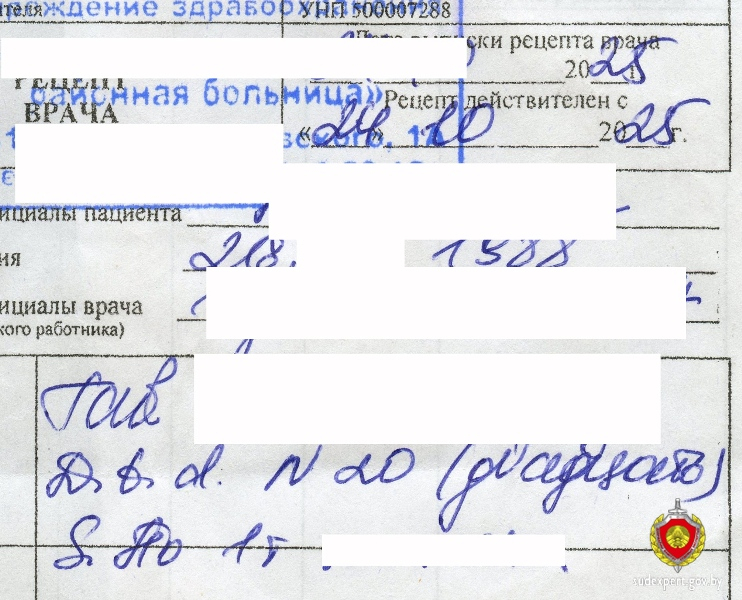 ителя
ждение здравоохр
УНП 500007288
Дата выписки рецепта врача
2025 г.
РЕЦЕПТ
районная больница»
ВРАЧА
Рецепт действителен с
«24» 10 2025 г.
вского, 17
ициалы пациента
ия 218. 1988
ициалы врача
кого работника)
Таб
D. t. d. N 20 (двадцать)
S. По 1т
sudexpert.gov.by